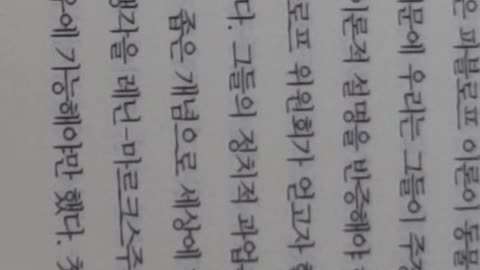 은 파블로프 이론이 동물
문에 우리는 그들이 주장
이론적 설명을 반증해야
로프 위원회가 얻고자
다. 그들의 정치적 과업
좁은 개념으로 세상에
생각을 레닌-마르크스주
우에 가능해야만 했다.